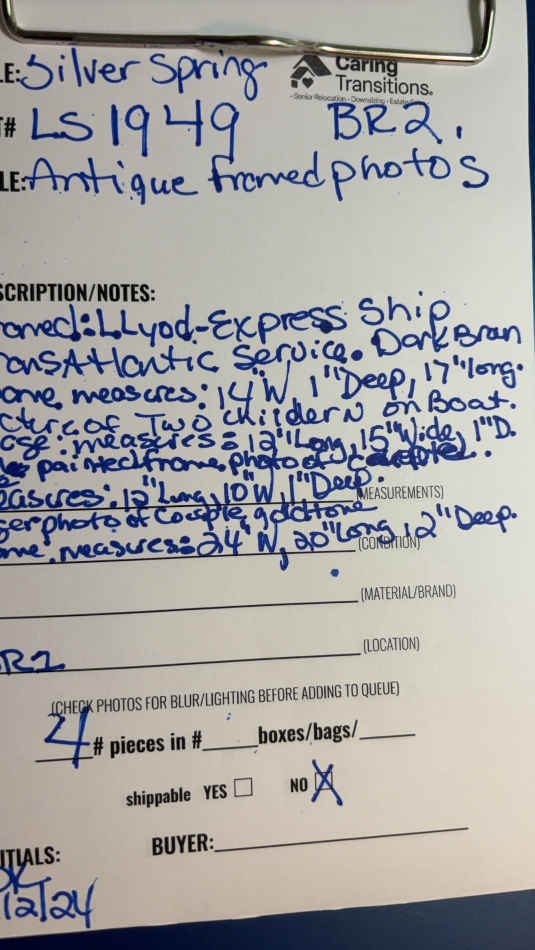 LE: Silver Spring
Caring
Transitions®
- Senior Relocation • Downsizing • Estate
T# LS 1949 BR2.
LE: Antique framed photos
SCRIPTION/NOTES:
amed: LLyod-Express Ship
ansAtlantic Service. Dark Bran
ame measures: 14"W 1"Deep, 17" long.
cture of Two childern on Boat.
measures: 12"Long, 15"Wide, 1"D.
painted frame. photo of
easures: 12"Long, 10"W, 1"Deep.
(MEASUREMENTS)
ger photo of couple, gold tone
ame measures: 24"W, 20"Long, 2"Deep.
(CONDITION)
(MATERIAL/BRAND)
R2 (LOCATION)
(CHECK PHOTOS FOR BLUR/LIGHTING BEFORE ADDING TO QUEUE)
4 # pieces in #____ boxes/bags/____
shippable YES ☐ NO ☒
ITIALS: BUYER:
12/24